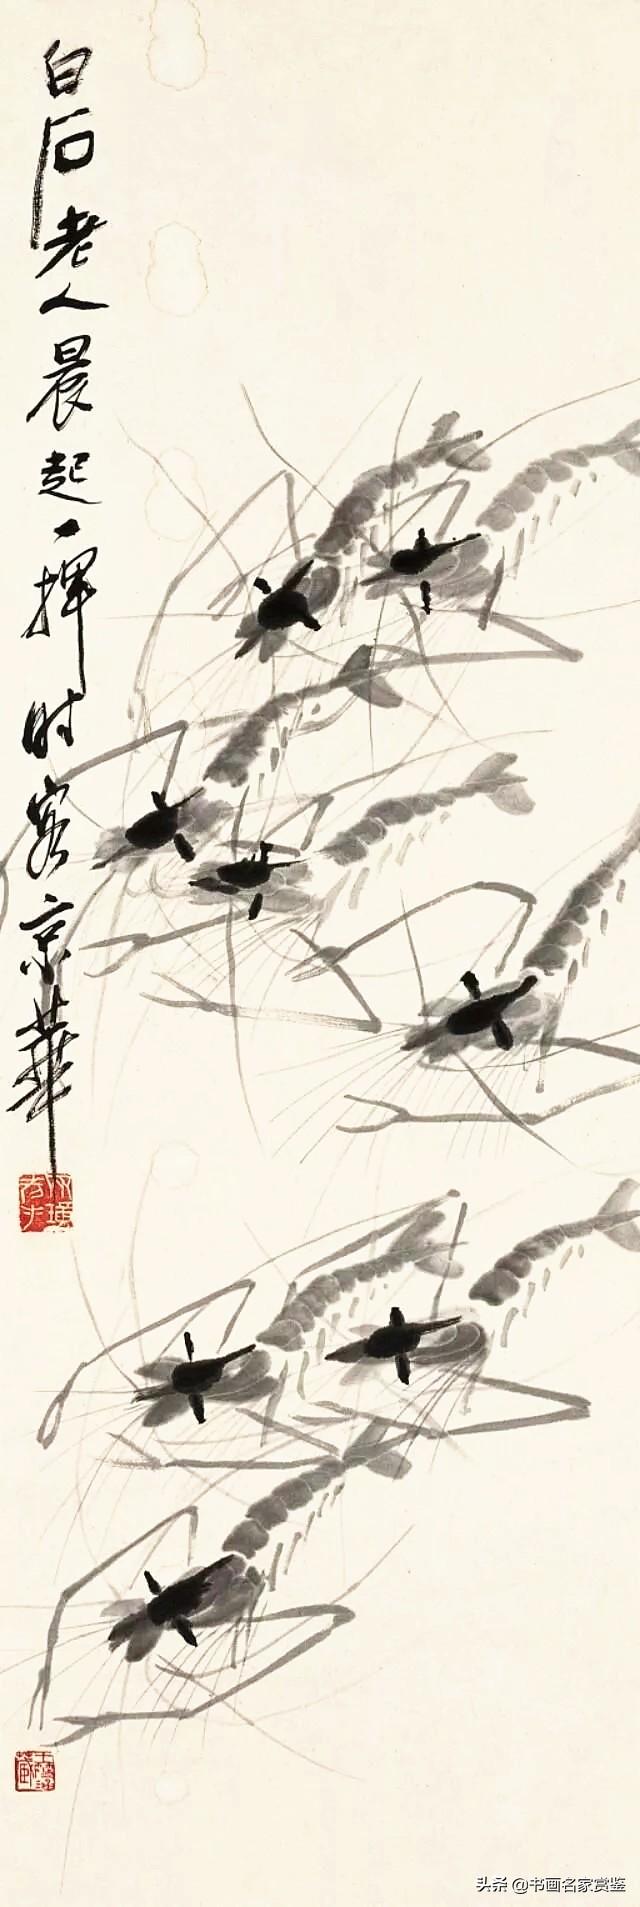 白石老人晨起一揮时客京華
头条 @书画名家赏鉴